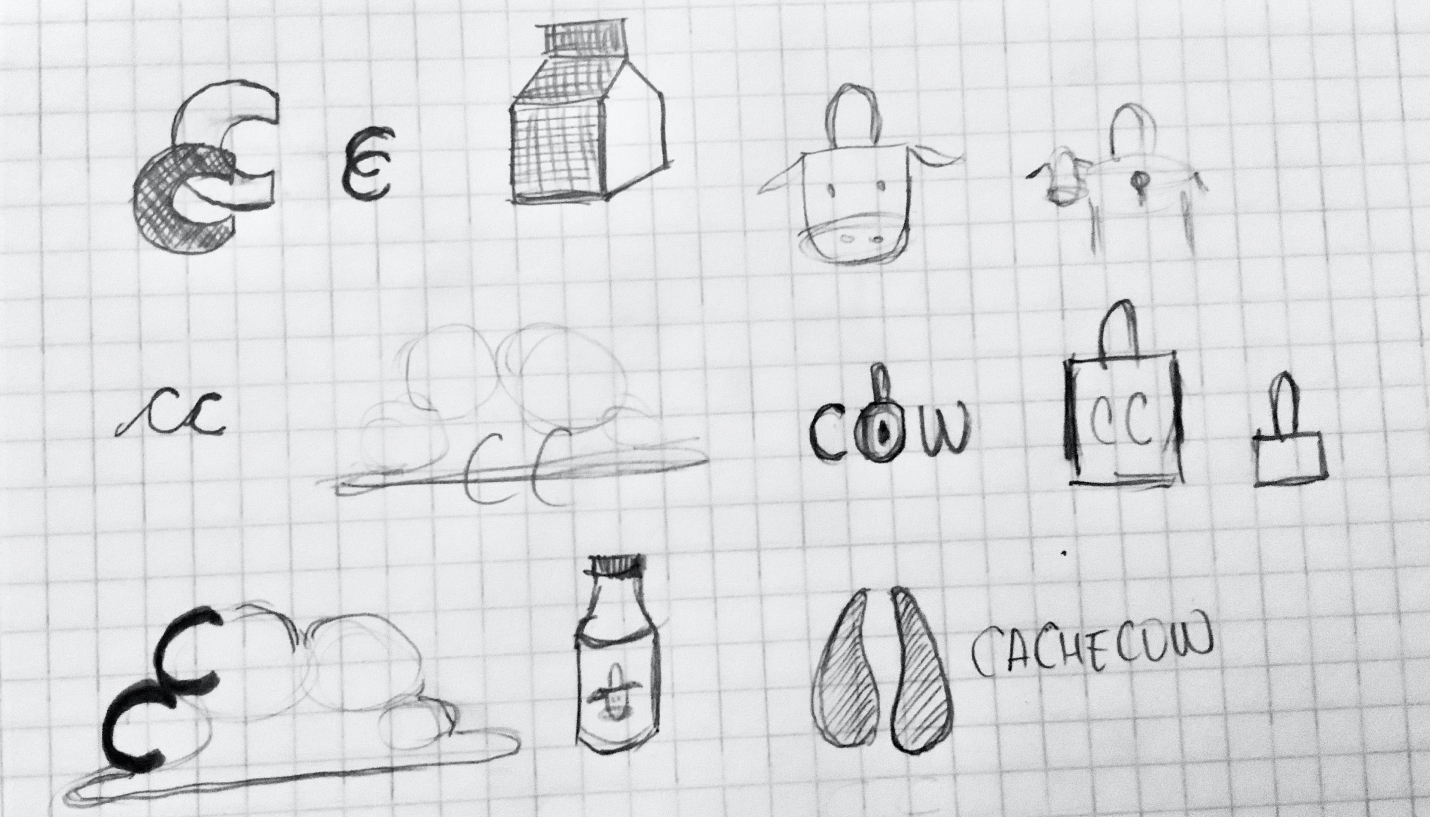 CC
CC
cc
CC
COW
CC
CC
CACHECOW